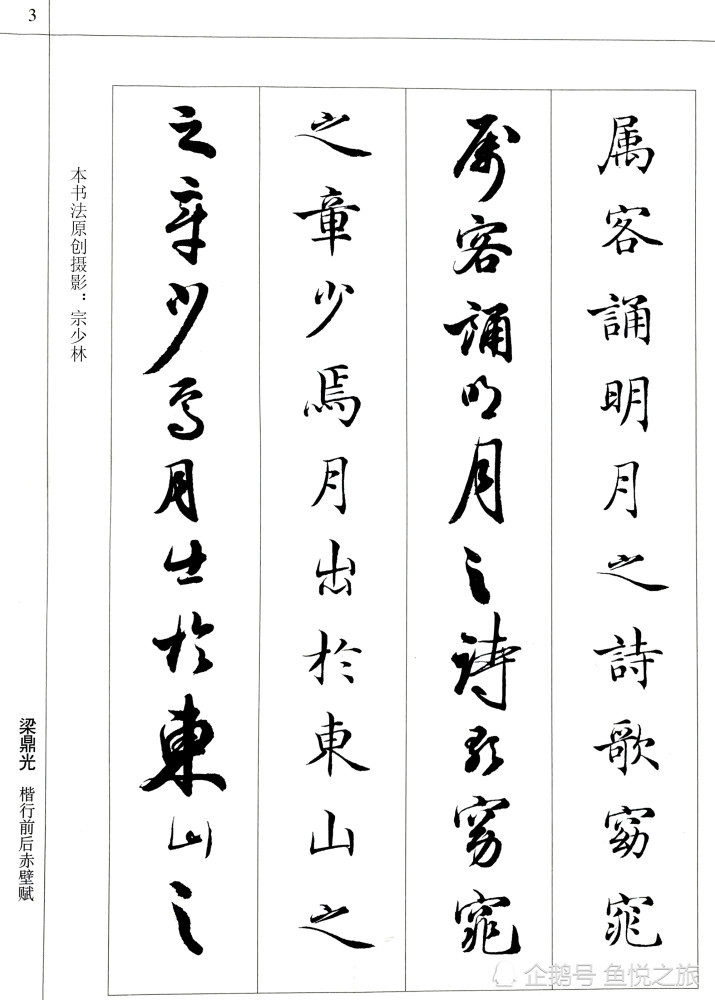 3
属客誦明月之詩歌窈窕
属客誦明月之詩歌窈窕
之章少焉月出於東山之
之章少焉月出於東山之
本书法原创摄影：宗少林
梁鼎光 楷行前后赤壁赋
企鹅号 鱼悦之旅